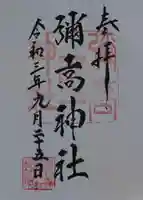 奉拝
彌高神社
令和三年九月二十五日